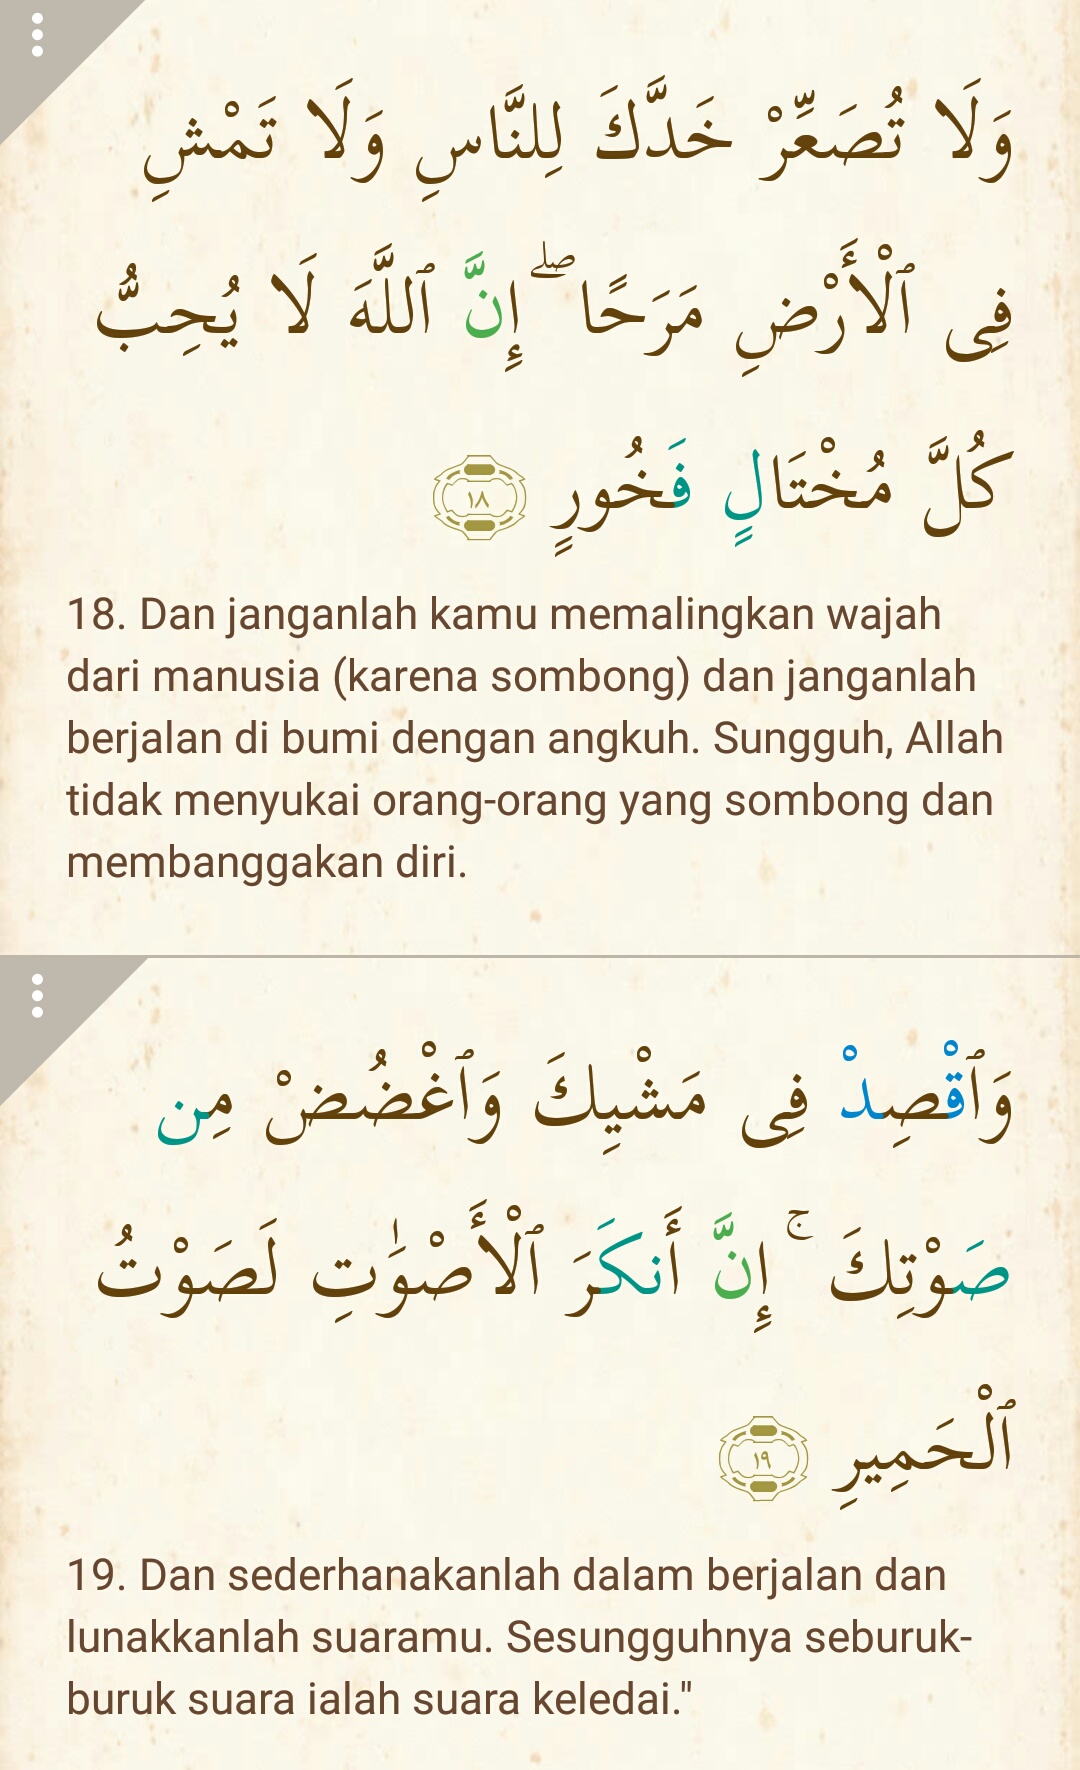 وَلَا تُصَعِّرْ خَدَّكَ لِلنَّاسِ وَلَا تَمْشِ
فِى ٱلْأَرْضِ مَرَحًا ۖ إِنَّ ٱللَّهَ لَا يُحِبُّ
كُلَّ مُخْتَالٍ فَخُورٍ ١٨
18. Dan janganlah kamu memalingkan wajah
dari manusia (karena sombong) dan janganlah
berjalan di bumi dengan angkuh. Sungguh, Allah
tidak menyukai orang-orang yang sombong dan
membanggakan diri.
وَٱقْصِدْ فِى مَشْيِكَ وَٱغْضُضْ مِن
صَوْتِكَ ۚ إِنَّ أَنكَرَ ٱلْأَصْوَٰتِ لَصَوْتُ
ٱلْحَمِيرِ ١٩
19. Dan sederhanakanlah dalam berjalan dan
lunakkanlah suaramu. Sesungguhnya seburuk-
buruk suara ialah suara keledai."